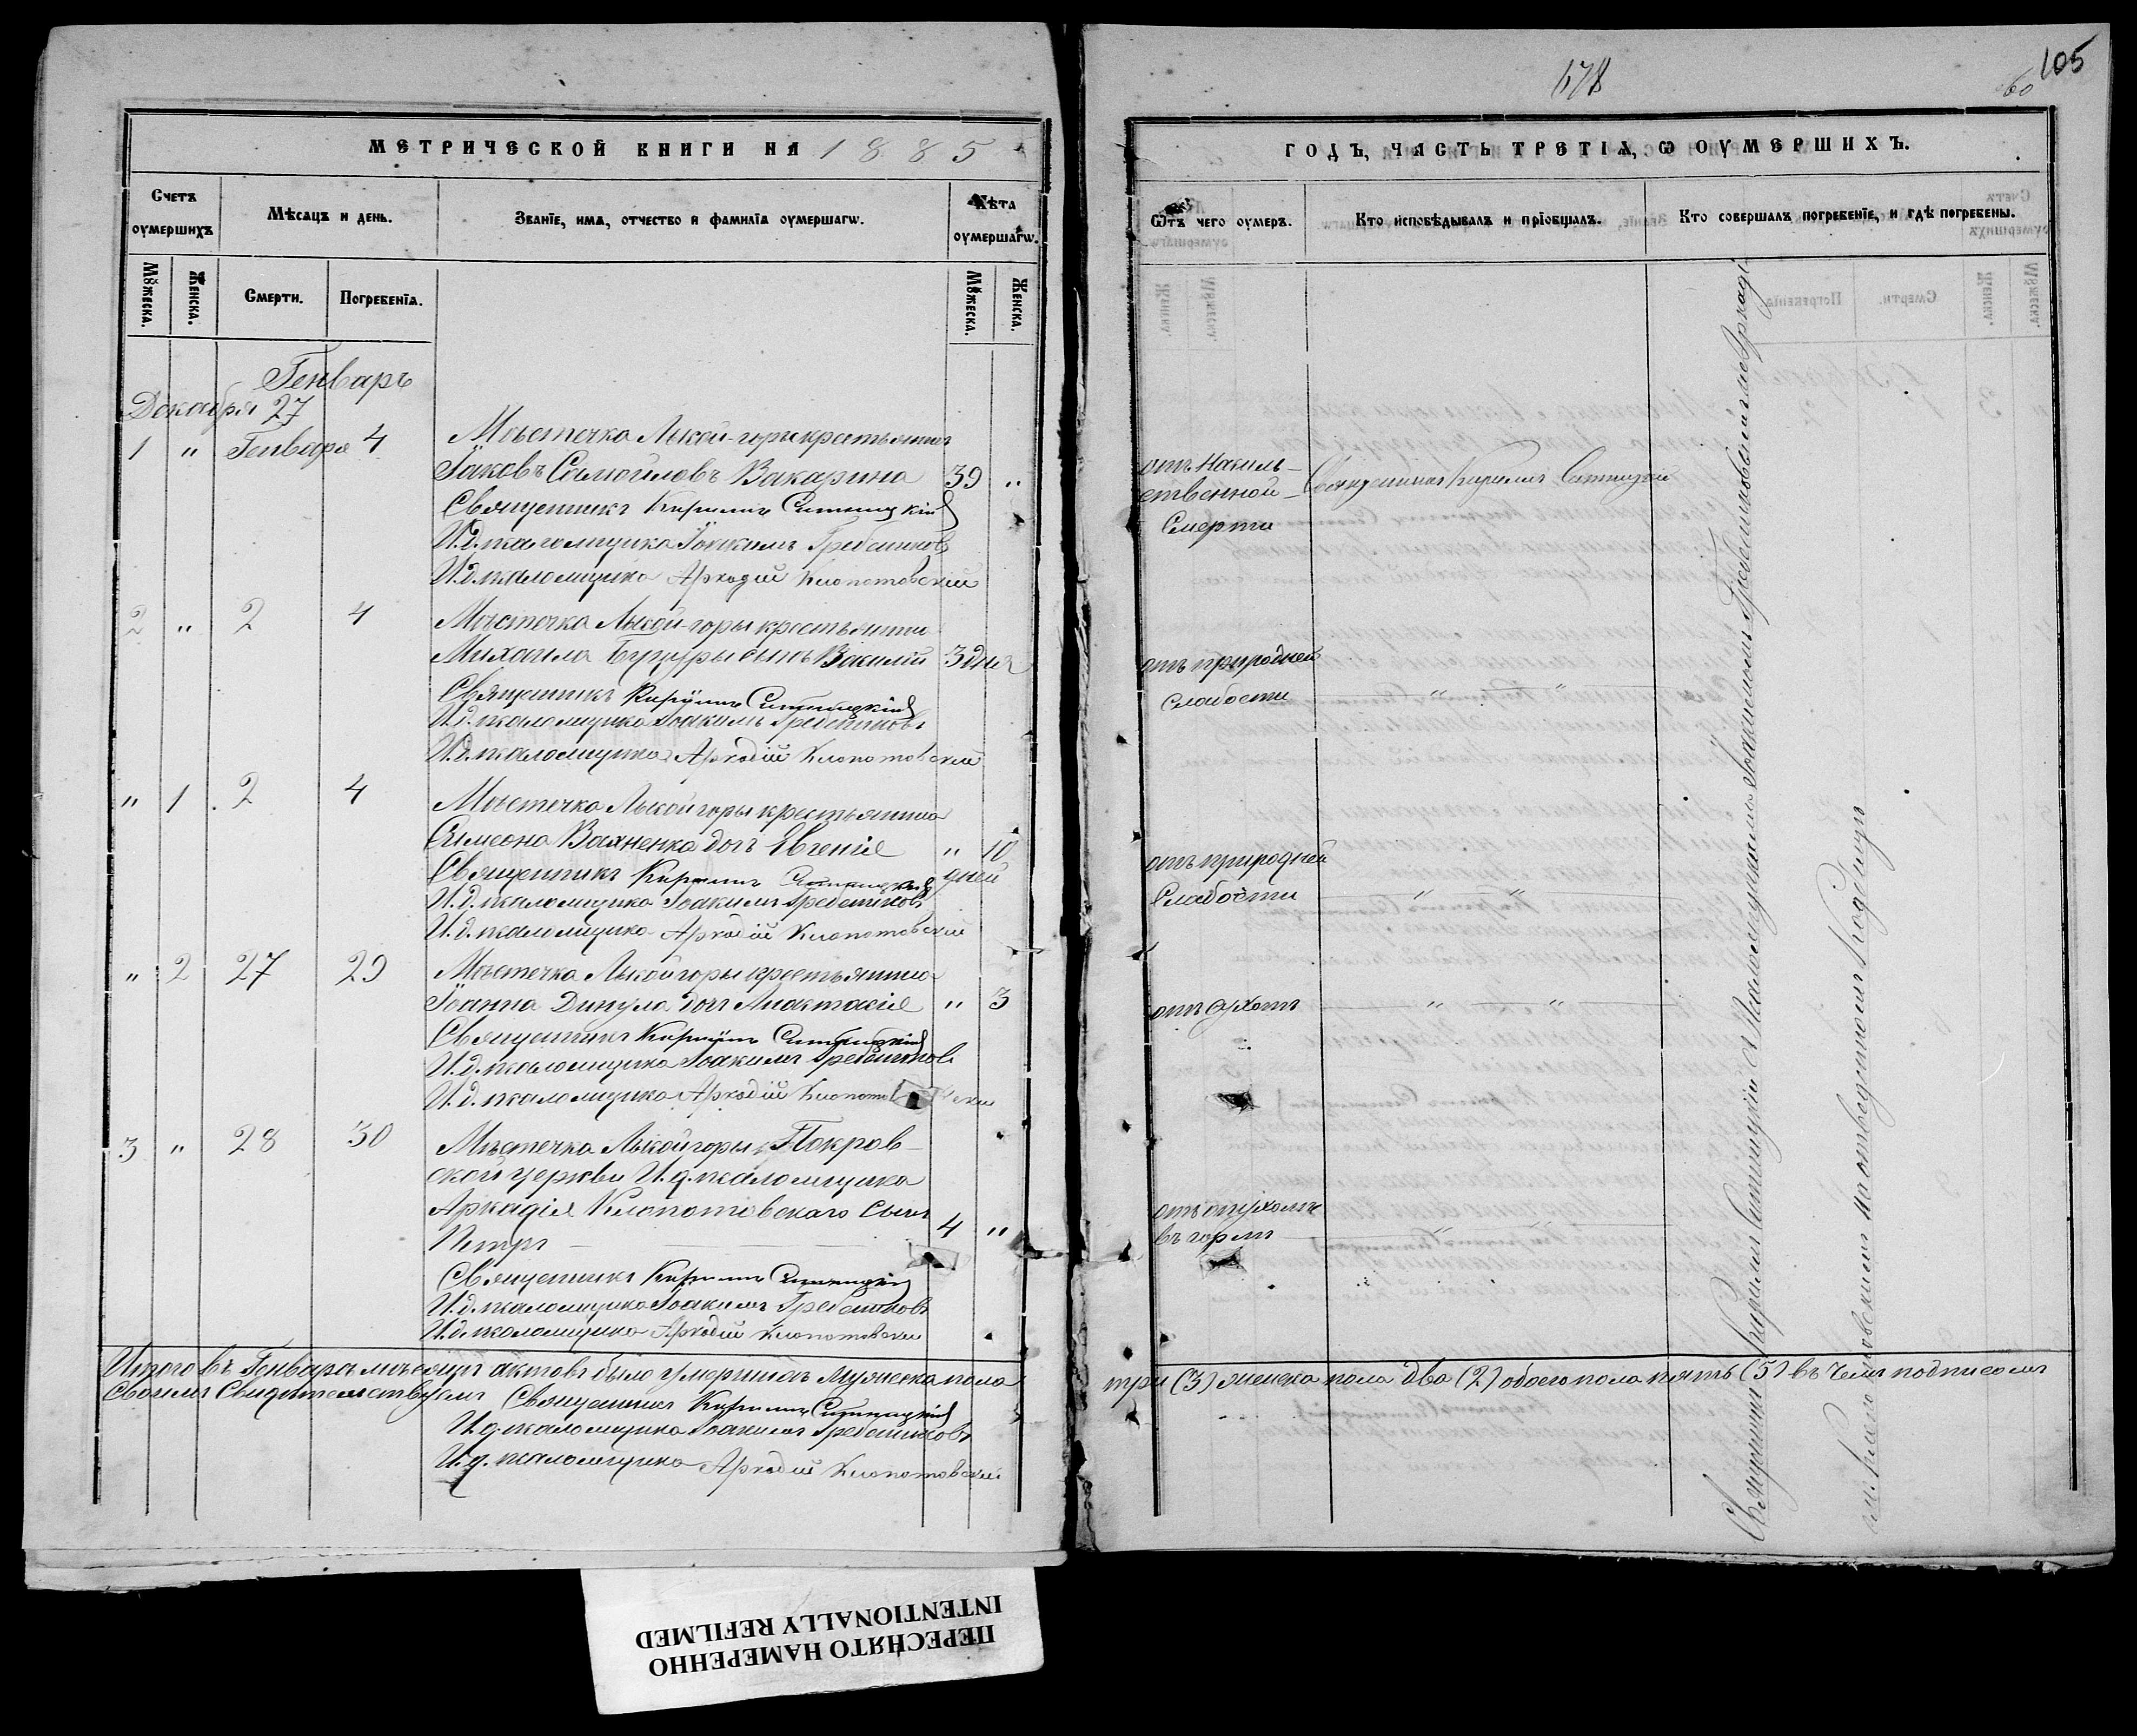 МЕТРИЧЕСКОЙ КНИГИ НА 1885
Счетъ оумершихъ
Мѣсяцъ и день.
Званїе, имѧ, отчество и фамилїа оумершагѡ.
Лѣта оумершагѡ.
Мꙋжеска.
Женска.
Смерти.
Погребенїѧ.
Мꙋжеска.
Женска.
Генварь
Декабря 27
1 " Генваря 4
Мѣстечка Лысой-горы крестьянинъ
Іаковъ Самойловъ Вакарина 39 "
Священникъ Кириллъ Ситницкій
И.д. псаломщика Іоакимъ Гребенниковъ
И.д. псаломщика Аркадій Клопотовскій
2 " 2 4
Мѣстечка Лысой-горы крестьянина
Михаила Бугуры сынъ Василій 3 дня
Священникъ Кириллъ Ситницкій
И.д. псаломщика Іоакимъ Гребенниковъ
И.д. псаломщика Аркадій Клопотовскій
" 1 2 4
Мѣстечка Лысой горы крестьянина
Симеона Вахненка дочь Евгенія " 10
дней
Священникъ Кириллъ Ситницкій
И.д. псаломщика Іоакимъ Гребенниковъ
И.д. псаломщика Аркадій Клопотовскій
" 2 27 29
Мѣстечка Лысой горы крестьянина
Іоанна Динула дочь Анастасія " 3
Священникъ Кириллъ Ситницкій
И.д. псаломщика Іоакимъ Гребенниковъ
И.д. псаломщика Аркадій Клопотовскій
3 " 28 30
Мѣстечка Лысой горы Покров-
ской церкви И.д. псаломщика
Аркадія Клопотовскаго сынъ
Петръ 4 "
Священникъ Кириллъ Ситницкій
И.д. псаломщика Іоакимъ Гребенниковъ
И.д. псаломщика Аркадій Клопотовскій
Итого въ Генварѣ мѣсяцѣ актовъ было умершихъ мужеска пола
Своимъ свидѣтельствуемъ Священникъ Кириллъ Ситницкій
И.д. псаломщика Іоакимъ Гребенниковъ
И.д. псаломщика Аркадій Клопотовскій
178
60
105
ГОДЪ, ЧАСТЬ ТРЕТІѦ, Ѡ ОУМЕРШИХЪ.
Ѿтъ чего оумеръ.
Кто исповѣдывалъ и прїобщалъ.
Кто совершалъ погребенїе, и гдѣ погребены.
отъ насиль-
ственной
смерти
Священникъ Кириллъ Ситницкій
отъ природной
слабости " "
отъ природной
слабости " "
отъ сухотъ " "
отъ опухоли
въ горлѣ "
Священникъ Кириллъ Ситницкій съ Псаломщиками Іоакимомъ Гребенниковымъ и Аркаді-
емъ Клопотовскимъ на отведенномъ кладбищѣ
три (3) женска пола два (2) обоего пола пять (5) въ чемъ подписомъ
ПЕРЕСНЯТО НАМЕРЕННО
INTENTIONALLY REFILMED